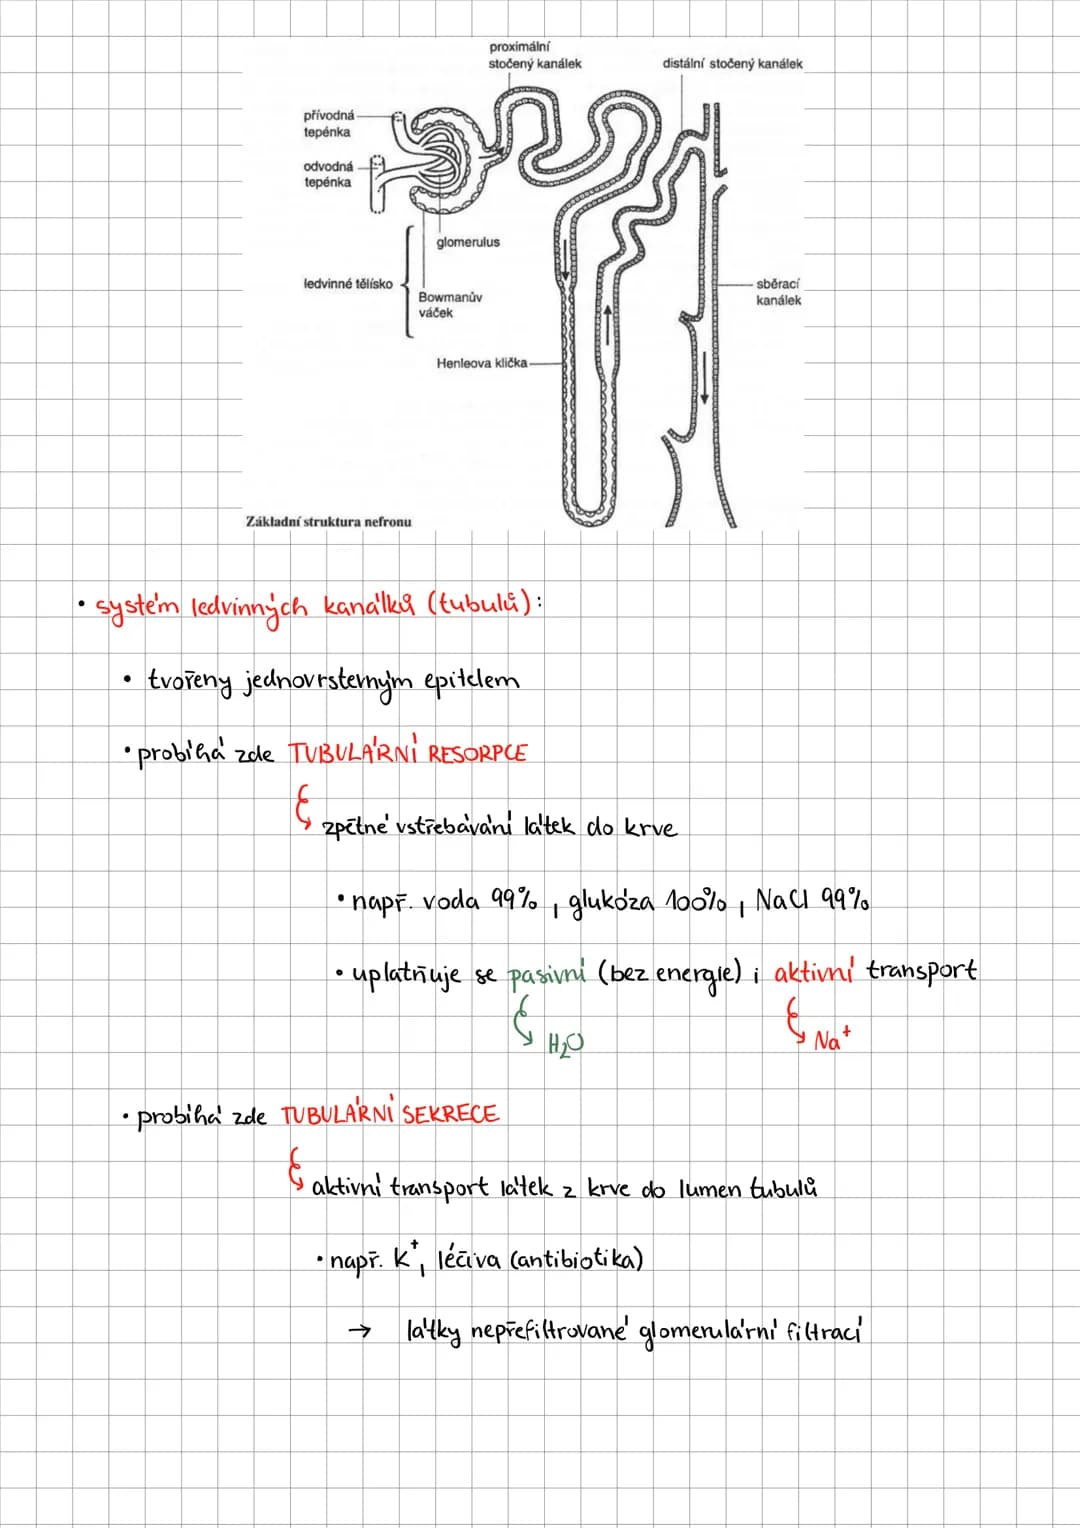 proximální
stočený kanálek
distální stočený kanálek
přívodná
tepénka
odvodná
tepénka
glomerulus
ledvinné tělísko
Bowmanův
váček
sběrací
kanálek
Henleova klička
Základní struktura nefronu
• systém ledvinných kanálků (tubulů):
• tvořeny jednovrstevným epitelem
• probíhá zde TUBULÁRNÍ RESORPCE
zpětné vstřebávání látek do krve
• např. voda 99% , glukóza 100% , NaCl 99%
• uplatňuje se pasivní (bez energie) i aktivní transport
H₂O
Na⁺
• probíhá zde TUBULÁRNÍ SEKRECE
aktivní transport látek z krve do lumen tubulů
• např. K⁺, léčiva (antibiotika)
→ látky nepřefiltrované glomerulární filtrací